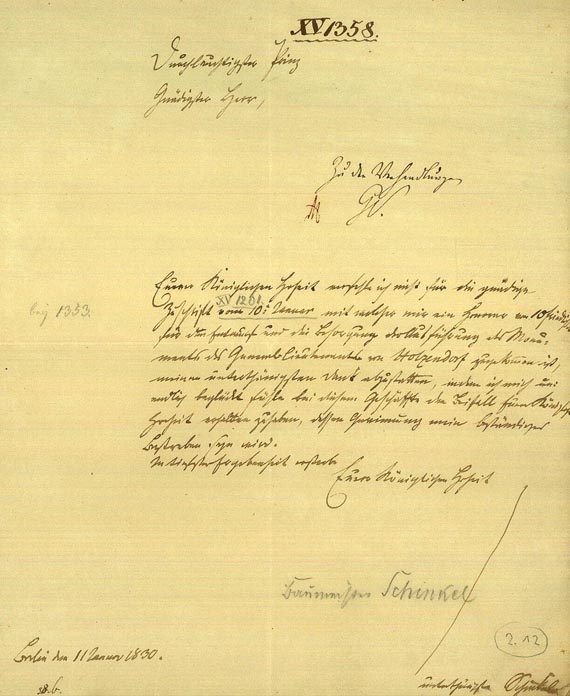 XV 1358.
Durchlauchtigster Prinz
Gnädigster Herr,
Zu den Verhandlungen
bei 1353.
Euerer Königlichen Hoheit verfehle ich nicht für die gnädige
XV 1201
Zuschrift vom 10t Januar mit welcher mir ein Honorar von 10
für den Entwurf und die Besorgung der Ausführung des Monu-
ments des General Lieutenants von Holzendorf zugekommen ist,
meinen unterthänigsten Dank abzustatten, indem ich mich un-
endlich beglückt fühle bei diesem Geschäfte den Beifall Eurer Königl
Hoheit erhalten zu haben, dessen Gewinnung mein beständiges
Bestreben seyn wird.
In tiefster Ergebenheit ersterbe
Euerer Königlichen Hoheit
Baumeister Schinkel
2.12
Berlin den 11 Januar 1830.
unterthänigster Schinkel